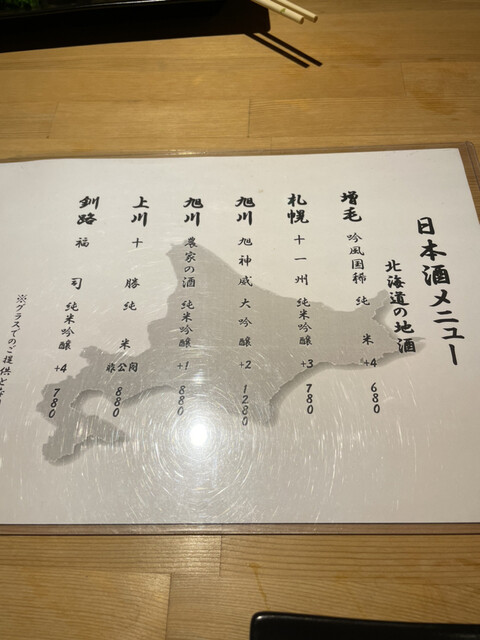 日本酒メニュー
北海道の地酒
増毛 吟風国稀 純米 +4 680
札幌 十一州 純米吟醸 +3 780
旭川 旭神威 大吟醸 +2 1280
旭川 農家の酒 純米吟醸 +1 880
上川 十勝 純米 非公開 880
釧路 福司 純米吟醸 +4 780
※グラスでのご提供とな